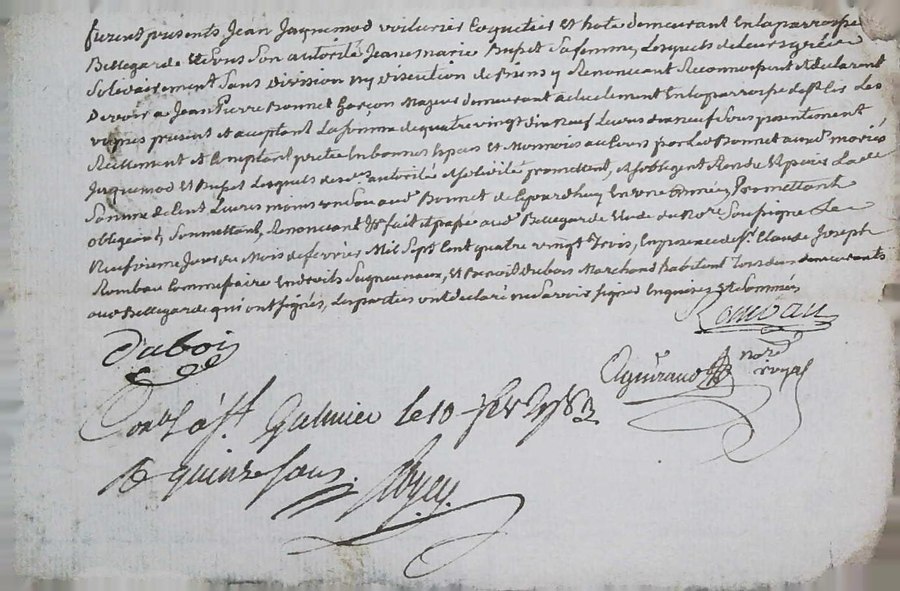 furent présents Jean Jaquemod voiturier Coquetier et hote demeurant En la parroisse
Bellegarde Et sous Son autorité Jeanemarie Bupet Sa femme, Lesquels de leurs gré
Solidairement Sans Division ny discution de biens y Renoncant Reconnoissent et declarent
Devoir a Jean Pierre Bonnet Garçon Majeur demeurant actuelement En la parroisse de St
vignes présent et acceptant La somme de quatre vingt dix neuf Livres dix neuf Sous presentement
Réellement et Comptant pretée En bonnes Especes et Monnoies au Cours par Led Bonnet auxd mariés
Jaquemod Et Bupet Lesquels de autorité et solidité promettent, et sobligent Rendre Et paier Lad
Somme de Cent Livres moins un Sou aud Bonnet de Ce jourdhuy En une Année, Promettant
obligeant, Soumettant, Renoncant &c fait et passé aud Bellegarde Etude du Nore Soussigné Le
Neufvieme Jour du Mois de fevrier Mil Sept Cent quatre vingt trois, En presence de Sr Claude Joseph
Rombau Commissaire En droits Seigneuriaux, Et Benoit Dubois Marchand habitant Tous deux demeurants
aud Bellegarde qui ont signés, Les parties ont declaré ne Savoir signer Enquises Et Sommées
Rombau
Dubois
nore royal
Conlé à St Galmier le 10 fev 1783
R quinze sous